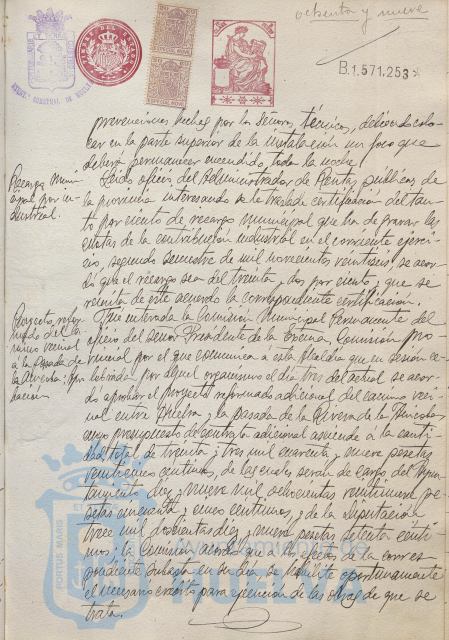 ochenta y nueve
B.1.571.253
prevenciones hechas por los señores técnicos, debiendo colo-
car en la parte superior de la instalación un foco que
deberá permanecer encendido toda la noche.
Recargo muni-
cipal por in-
dustrial.
Leido oficio del Administrador de Rentas publicas de
la provincia interesando se le traslade certificación del tan-
to por ciento de recargo municipal que ha de gravar las
cuotas de la contribución industrial en el corriente ejerci-
cio, segundo semestre de mil novecientos veintiseis se acor-
dó que el recargo sea del treinta y dos por ciento y que se
remita de este acuerdo la correspondiente certificación.
Proyecto refor-
mado del ca-
mino vecinal
a la pasada de
la Rivera:
Que enterada la Comisión Municipal Permanente del
oficio del señor Presidente de la Excma. Comisión pro-
vincial por el que comunica a esta Alcaldía que en sesión ce-
lebrada por aquel organismo el día tres del actual se acor-
dó aprobar el proyecto reformado adicional del camino veci-
nal entre Huelva y la pasada de la Rivera de la
cuyo presupuesto de contrata adicional asciende a la canti-
dad total de treinta y tres mil cuarenta y nueve pesetas
veinticinco centimos, de las cuales serán de cargo del Ayun-
tamiento diez y nueve mil ochocientas veintinueve pe-
setas cincuenta y cinco centimos, y de la Diputación
trece mil doscientas diez y nueve pesetas setenta cénti-
mos; la Comisión acordó que a tal efecto y a la corres-
pondiente subasta en su día se habilite oportunamente
el necesario crédito para ejecución de las obras de que se
trata.
PORTUS MARIS
Ayuntamiento de
HUELVA